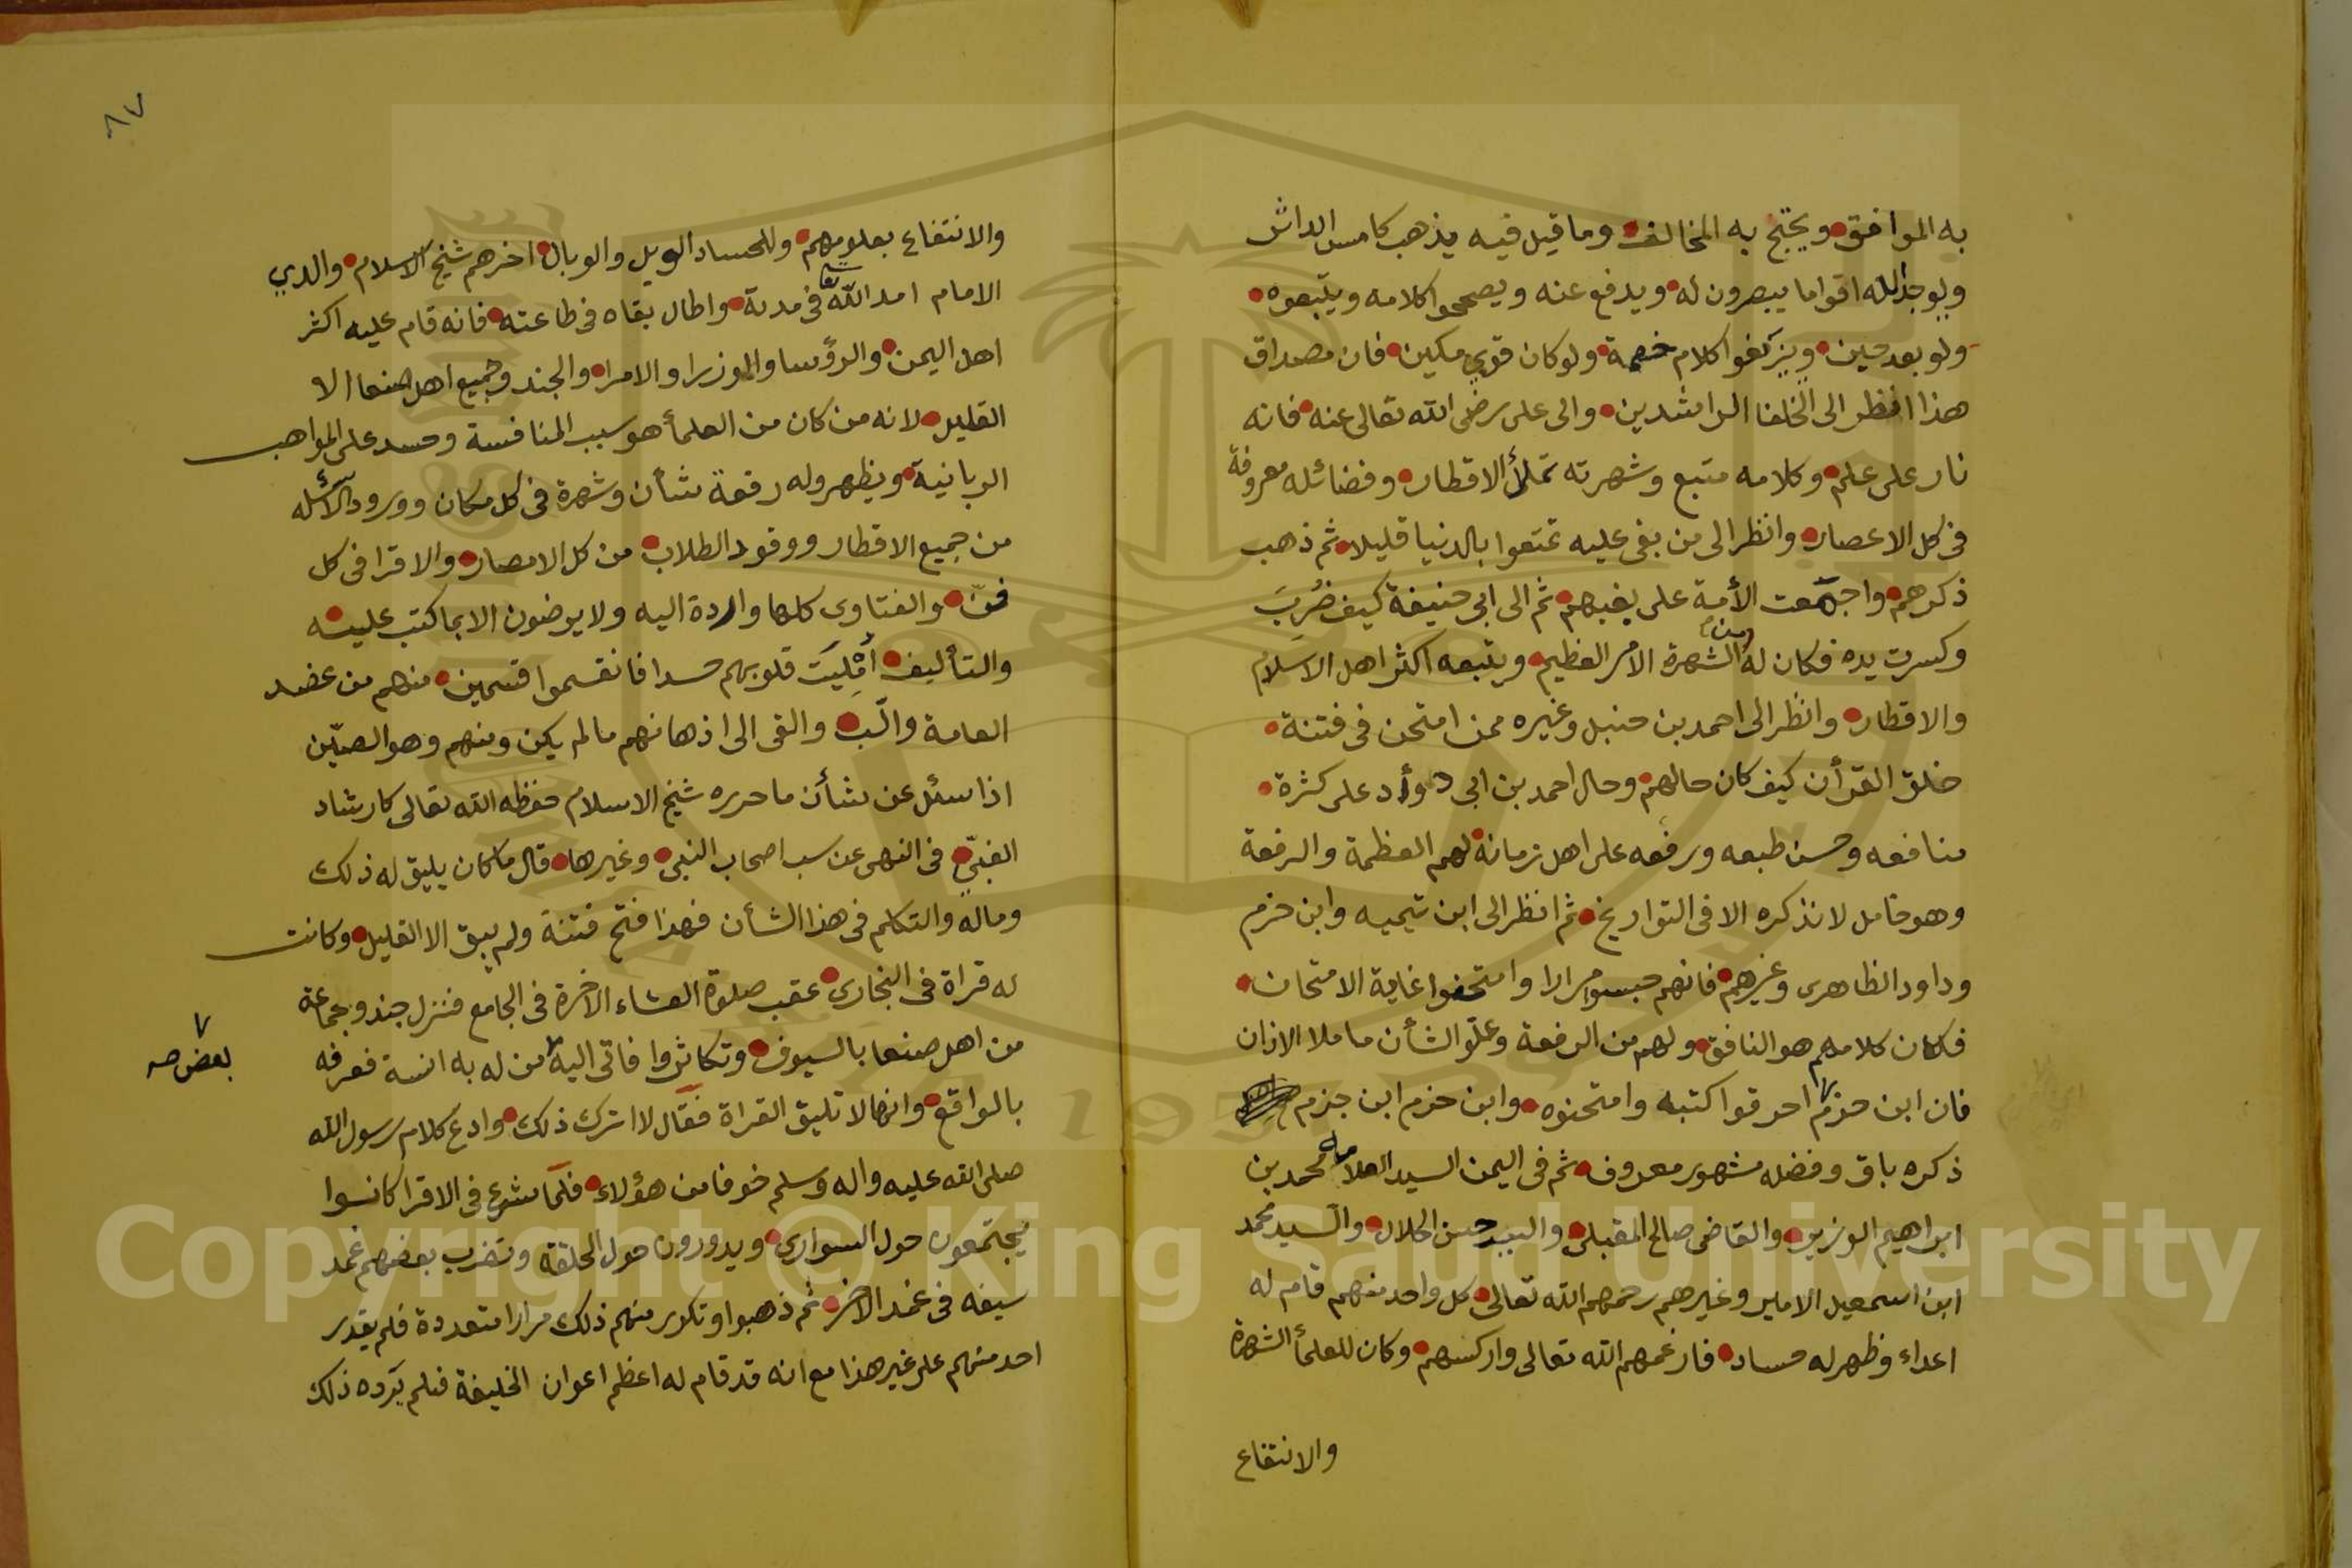 به الموافق ويحتج به المخالف وما قيل فيه يذهب كامس الداثر
ويوجد الله اقواما يبصرون له ويدفع عنه ويصححوا كلامه ويتبعوه
ولو بعد حين ويزيفوا كلام خصمه ولو كان قوي مكين فان مصداق
هذا انظر الى الخلفا الراشدين والى على رضى الله تعالى عنه فانه
نار على علم وكلامه متبع وشهرته تملأ الاقطار وفضائله معروفة
فى كل الاعصار وانظر الى من بغى عليه تمتعوا بالدنيا قليلا ثم ذهب
ذكرهم واجمعت الأمة على بغيهم ثم الى ابى حنيفة كيف ضُرِبَ
وكسرت يده فكان له من الشهرة الامر العظيم ويتبعه اكثر اهل الاسلام
والاقطار وانظر الى احمد بن حنبل وغيره ممن امتحن فى فتنة
خلق القرأن كيف كان حالهم وحال احمد بن ابى دوأد على كثرة
منافعه وحسن طبعه ورفعه على اهل زمانه لهم العظمة والرفعة
وهو خامل لا نذكره الا فى التواريخ ثم انظر الى ابن تيميه وابن حزم
وداود الظاهرى وغيرهم فانهم حبسوا مرارا وامتحنوا غاية الامتحان
فكان كلامهم هو النافق ولهم من الرفعة وعلو الشأن ما ملا الاذان
فان ابن حزم احرقوا كتبه وامتحنوه وابن حزم ابن حزم
ذكره باق وفضله مشهور معروف ثم فى اليمن السيد العلامه محمد بن
ابراهيم الوزير والقاضى صالح المقبلى والسيد حسن الجلال والسيد محمد
ابن اسمعيل الامير وغيرهم رحمهم الله تعالى كل واحد منهم قام له
اعداء وظهر له حساد فارغمهم الله تعالى واركسهم وكان للعلمأ الشهرة
والانتفاع
٨٧
والانتفاع بعلومهم وللحساد الويل والوبال اخرهم شيخ الاسلام والدي
الامام امد الله تعالى فى مدته واطال بقاه فى طاعته فانه قام عليه اكثر
اهل اليمن والرؤسا والوزرا والامرا والجند وجميع اهل صنعا الا
القليل لانه من كان من العلمأ هو سبب المنافسة وحسد على المواهب
الربانية ويظهر له رفعة شأن وشهرة فى كل مكان وورود الاسئله
من جميع الاقطار ووفود الطلاب من كل الامصار والاقرا فى كل
فنّ والفتاوى كلها واردة اليه ولا يرضون الا بما كتب عليه
والتأليف أمْلِيَت قلوبهم حسدا فانقسموا قسمين منهم من عضد
العامة والّب والقى الى اذهانهم ما لم يكن ومنهم وهو الصيّن
اذا سئل عن شأن ما حرره شيخ الاسلام حفظه الله تعالى كارشاد
الغبيّ فى النهى عن سب اصحاب النبي وغيرها قال ما كان يليق له ذلك
وماله والتكلم فى هذا الشأن فهذا فتح فتنة ولم يبق الا القليل وكانت
له قراة فى البخاري عقب صلوة العشاء الاخرة فى الجامع فنزل جند وجماعة
من اهل صنعا بالسيوف وتكاثروا فاتى اليه من له به انسة فعرفه
بعض صح
بالواقع وانها لا تليق القراة فقال لا اترك ذلك وادع كلام رسول الله
صلى الله عليه واله وسلم خوفا من هؤلاء فلما شرع فى الاقرا كانوا
يجتمعون حول السواري ويدورون حول الحلقة وتضرب بعضهم غمد
سيفه فى غمد الاخر ثم ذهبوا وتكرر منهم ذلك مرارا متعددة فلم يقدر
احد منهم على غير هذا مع انه قد قام له اعظم اعوان الخليفة فلم يرده ذلك
Copyright © King Saud University
1957